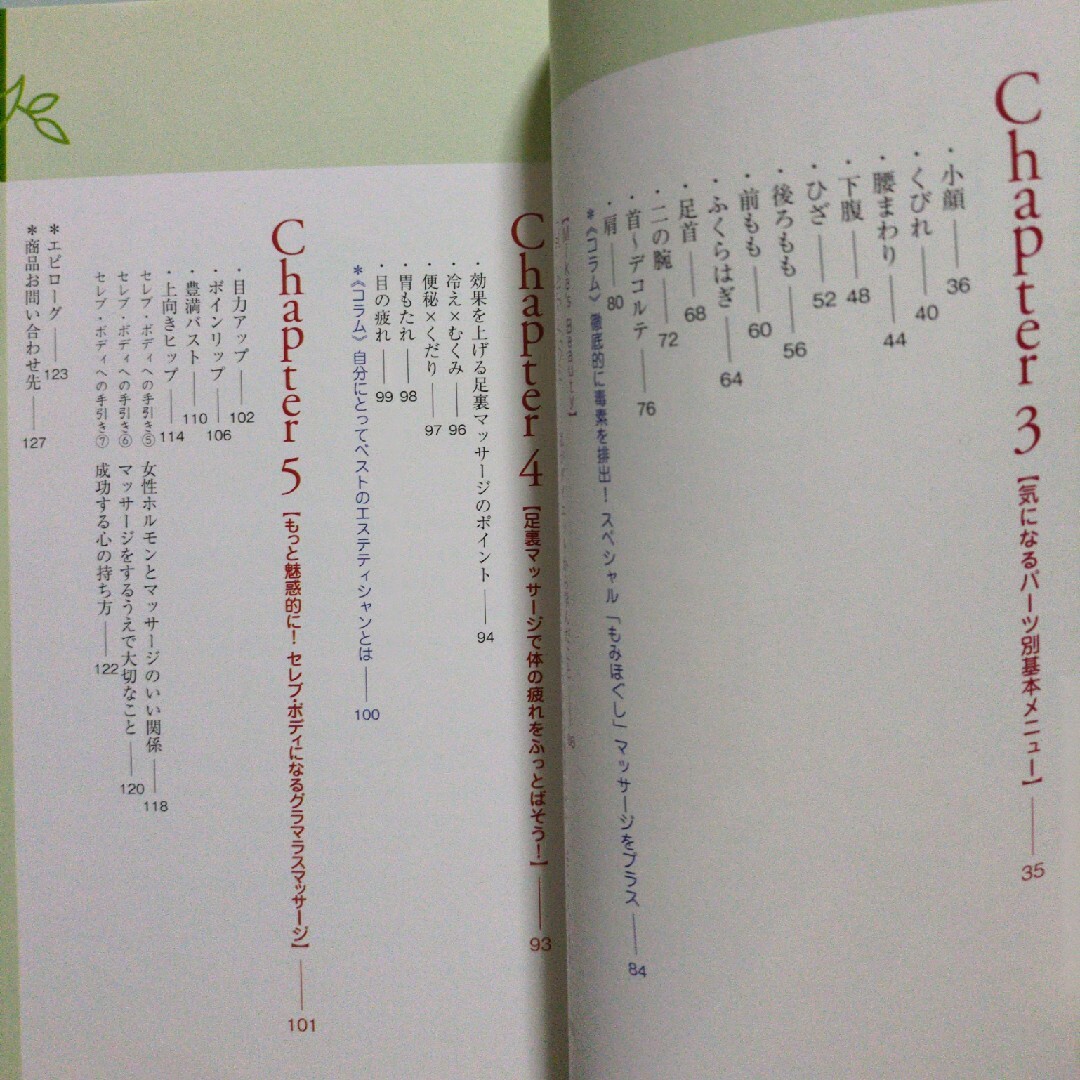 Chapter 3【気になるパーツ別基本メニュー】——35
・小顔——36
・くびれ——40
・腰まわり——44
・下腹——48
・ひざ——52
・後ろもも——56
・前もも——60
・ふくらはぎ——64
・足首——68
・二の腕——72
・首〜デコルテ——76
・肩——80
＊《コラム》徹底的に毒素を排出！スペシャル「もみほぐし」マッサージをプラス——84
Chapter 4【足裏マッサージで体の疲れをふっとばそう！】——93
・効果を上げる足裏マッサージのポイント——94
・冷え×むくみ——96
・便秘×くだり——97
・胃もたれ——98
・目の疲れ——99
＊《コラム》自分にとってベストのエステティシャンとは——100
Chapter 5【もっと魅惑的に！セレブ・ボディになるグラマラスマッサージ】——101
・目力アップ——102
・ボインリップ——106
・豊満バスト——110
・上向きヒップ——114
セレブ・ボディへの手引き⑤ 女性ホルモンとマッサージのいい関係——118
セレブ・ボディへの手引き⑥ マッサージをするうえで大切なこと——120
セレブ・ボディへの手引き⑦ 成功する心の持ち方——122
＊エピローグ——123
＊商品お問い合わせ先——127